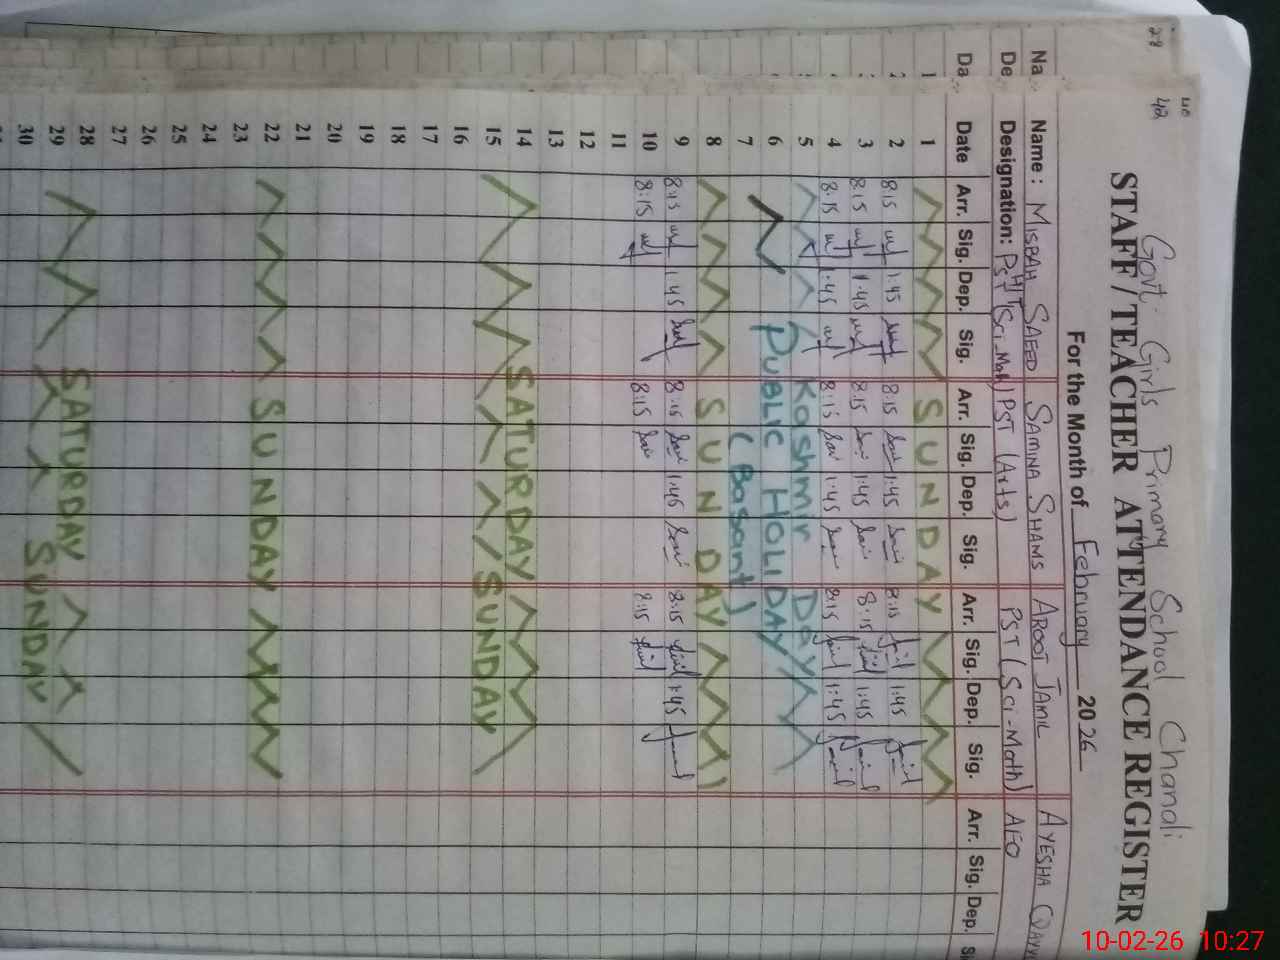 28
40
42
Govt. Girls Primary School Chanali
STAFF / TEACHER ATTENDANCE REGISTER
For the Month of February 2026
Na
Name : MISBAH SAEED SAMINA SHAMS AROOJ JAMIL AYESHA
De
Designation: PST (Sci_Math) PST (Arts) PST (Sci-Math) AEO
HT
Da
Date Arr. Sig. Dep. Sig. Arr. Sig. Dep. Sig. Arr. Sig. Dep. Sig. Arr. Sig. Dep.
1 SUNDAY
2 8:15 1:45 8:15 1:45 8:15 1:45
3 8:15 1:45 8:15 1:45 8:15 1:45
4 8:15 1:45 8:15 1:45 8:15 1:45
5 Kashmir Day
6 PUBLIC HOLIDAY
7 (Basant)
8 SUNDAY
9 8:15 1:45 8:15 1:45 8:15 1:45
10 8:15 8:15 8:15
11
12
13
14 SATURDAY
15 SUNDAY
16
17
18
19
20
21
22 SUNDAY
23
24
25
26
27
28 SATURDAY
29 SUNDAY
30
10-02-26 10:27